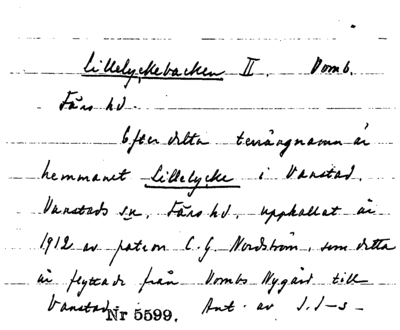 Lillelyckebacken II. Vomb.
Färs hd.
Efter detta terrängnamn är
hemmanet Lillelycke i Vanstad,
Vanstads sn, Färs hd, uppkallat år
1912 av patron C. G. Nordström, som detta
år flyttade från Vombs Nygård till
Vanstad. Ant. av J. I-s-
Nr 5599.